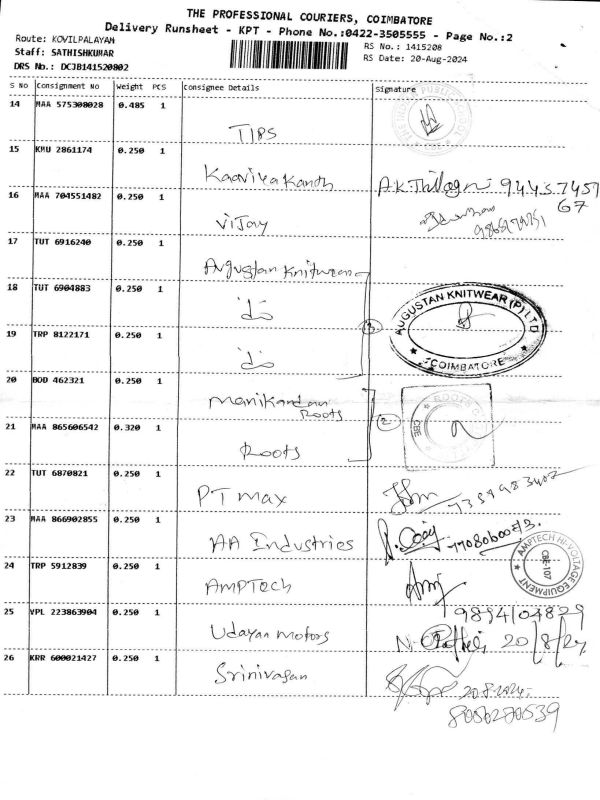 THE PROFESSIONAL COURIERS, COIMBATORE
Delivery Runsheet - KPT - Phone No.:0422-3505555 - Page No.:2
Route: KOVILPALAYAM
RS No.: 1415208
Staff: SATHISHKUMAR
RS Date: 20-Aug-2024
DRS No.: DCJB141520802
S No Consignment No Weight PCS Consignee Details Signature
14 MAA 575308028 0.485 1
TIPS
15 KMU 2861174 0.250 1
Kaaviya Kanth
16 MAA 704551482 0.250 1
Vijay
17 TUT 6916240 0.250 1
Augustan Knitwear
18 TUT 6904883 0.250 1
AUGUSTAN KNITWEAR (P) LTD
COIMBATORE
3
19 TRP 8122171 0.250 1
20 BOD 462321 0.250 1
Manikandan
Roots
ROOTS
CBE
2
21 MAA 865606542 0.320 1
Roots
22 TUT 6870821 0.250 1
PT max
23 MAA 866902855 0.250 1
AA Industries
AMPTECH HI-VOLTAGE EQUIPMENT
CBE-107
24 TRP 5912839 0.250 1
AMPTECH
25 VPL 223863904 0.250 1
Udayan Motors
20/8/24
26 KRR 600021427 0.250 1
Srinivasan
20.8.2024.